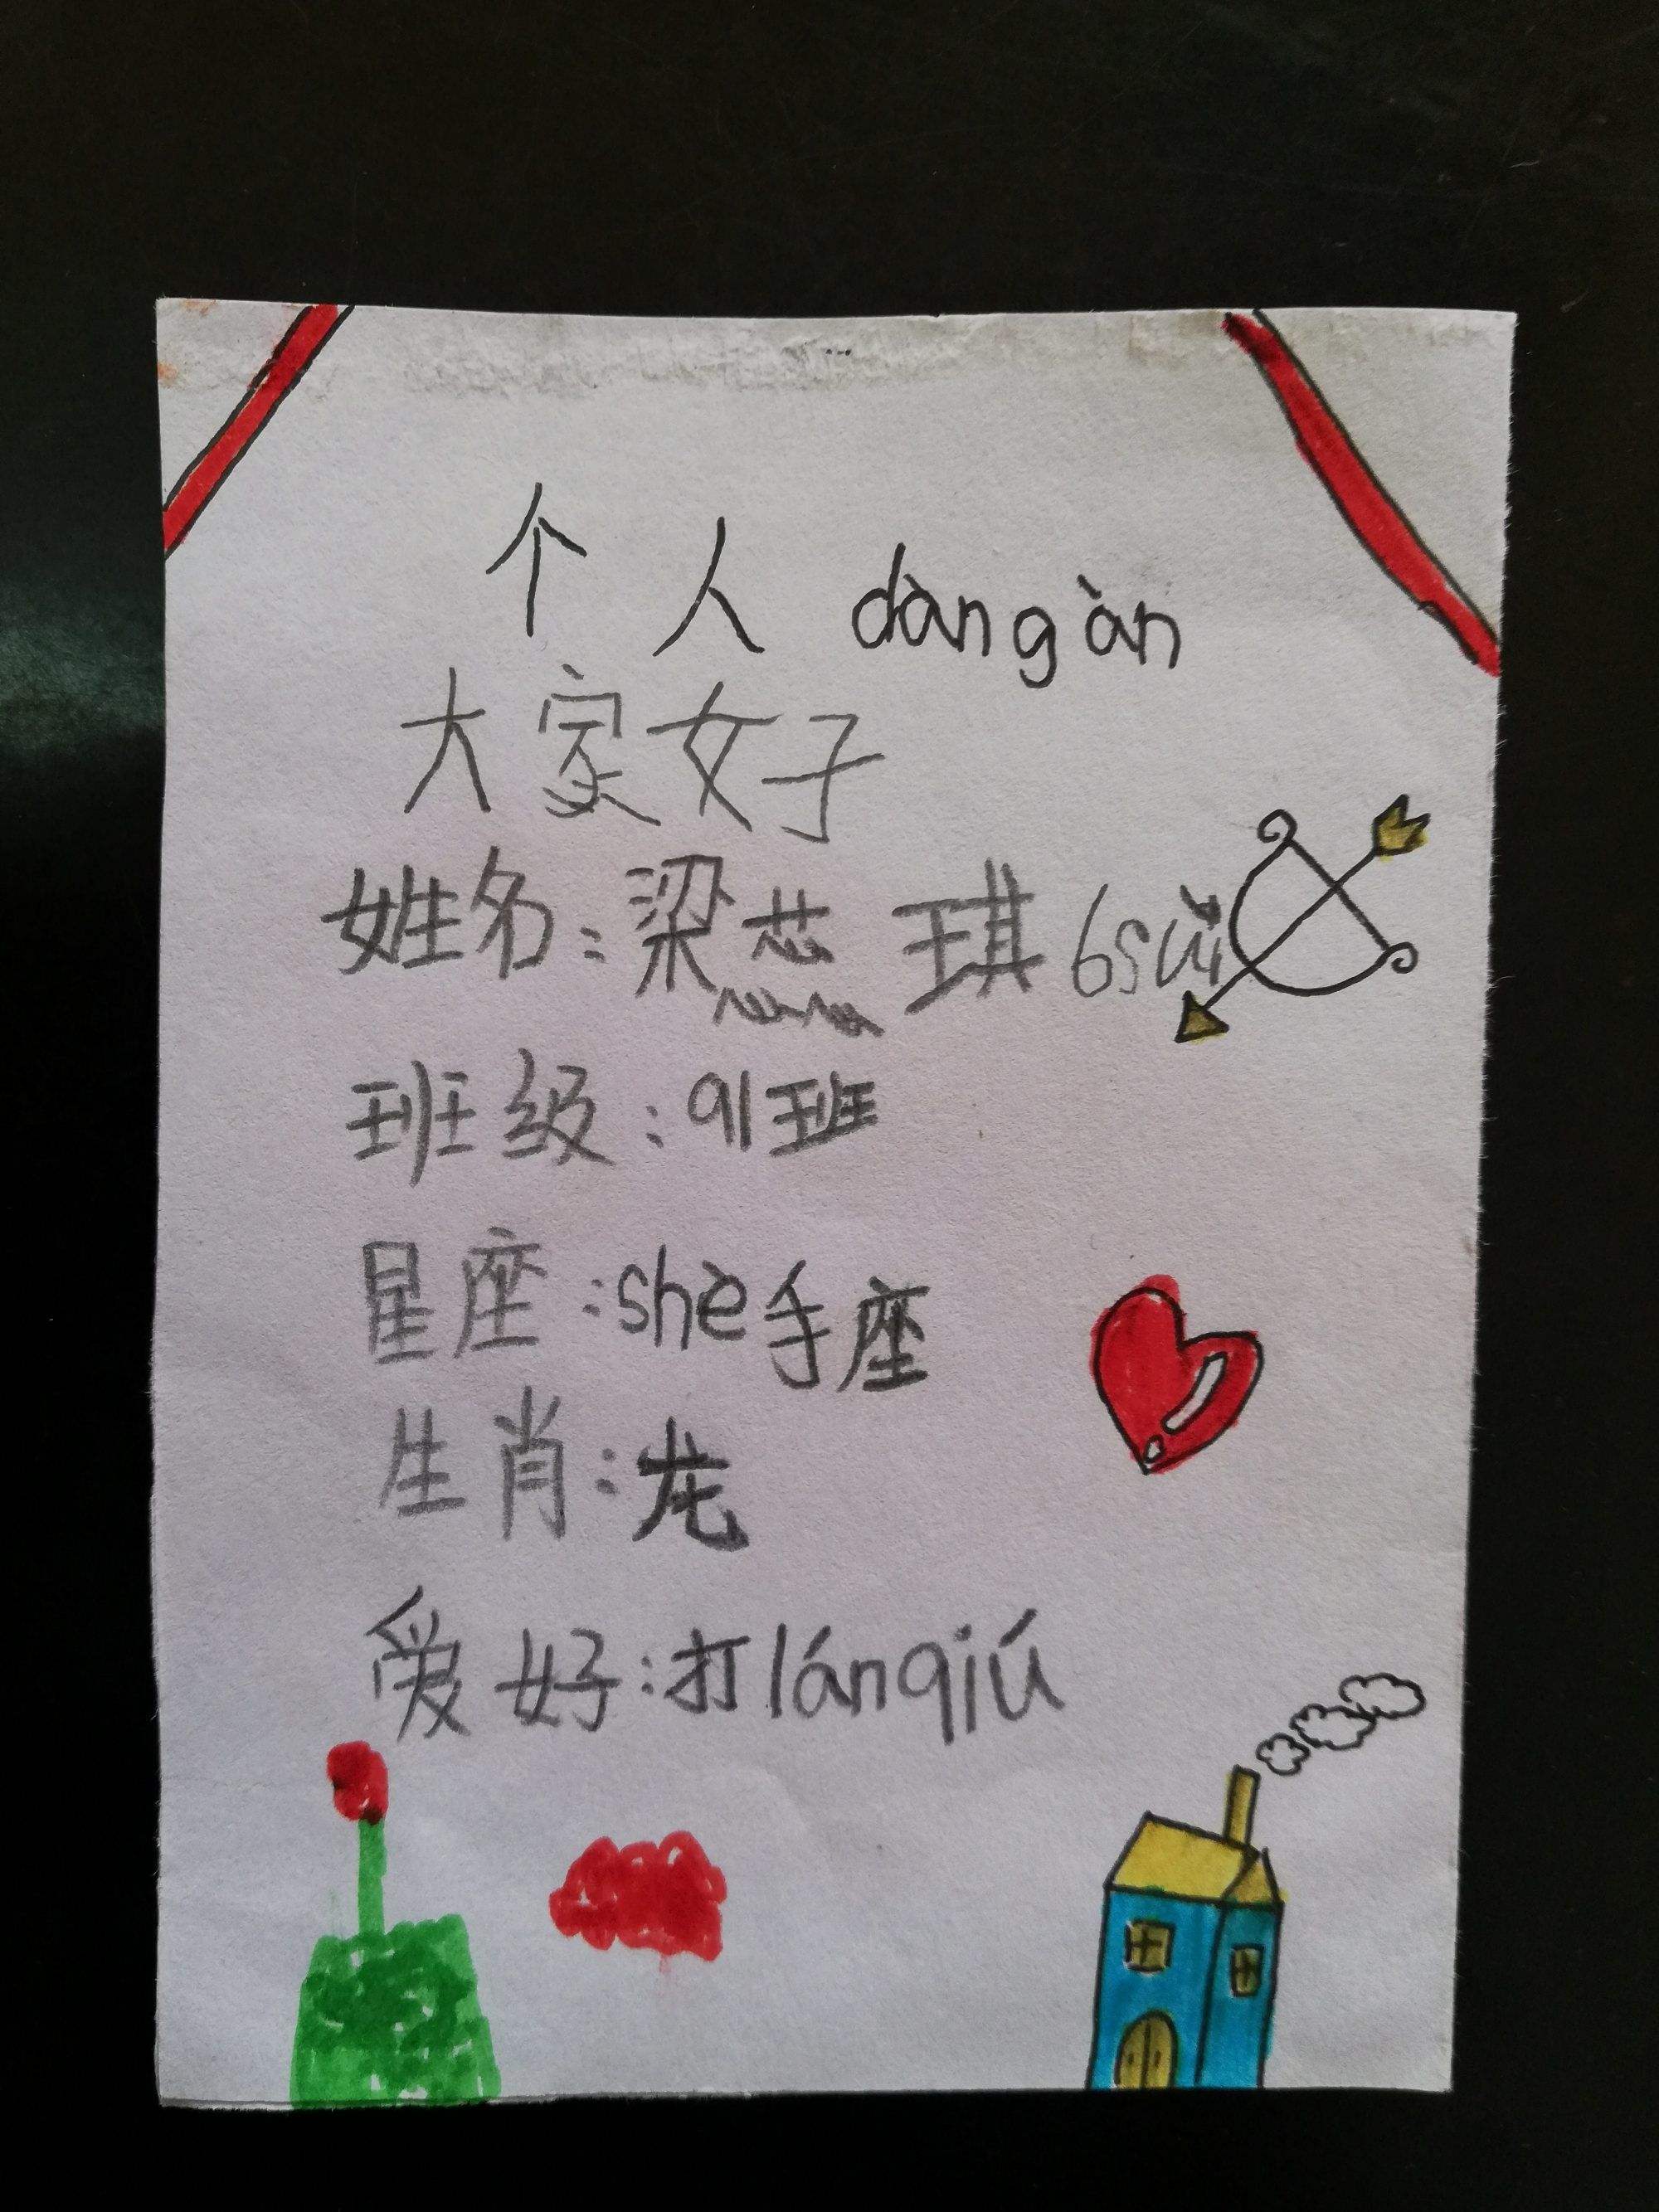 个人dàngàn
大家好
姓名:梁芯琪6suì
班级:91班
星座:shè手座
生肖:龙
爱好:打lánqiú